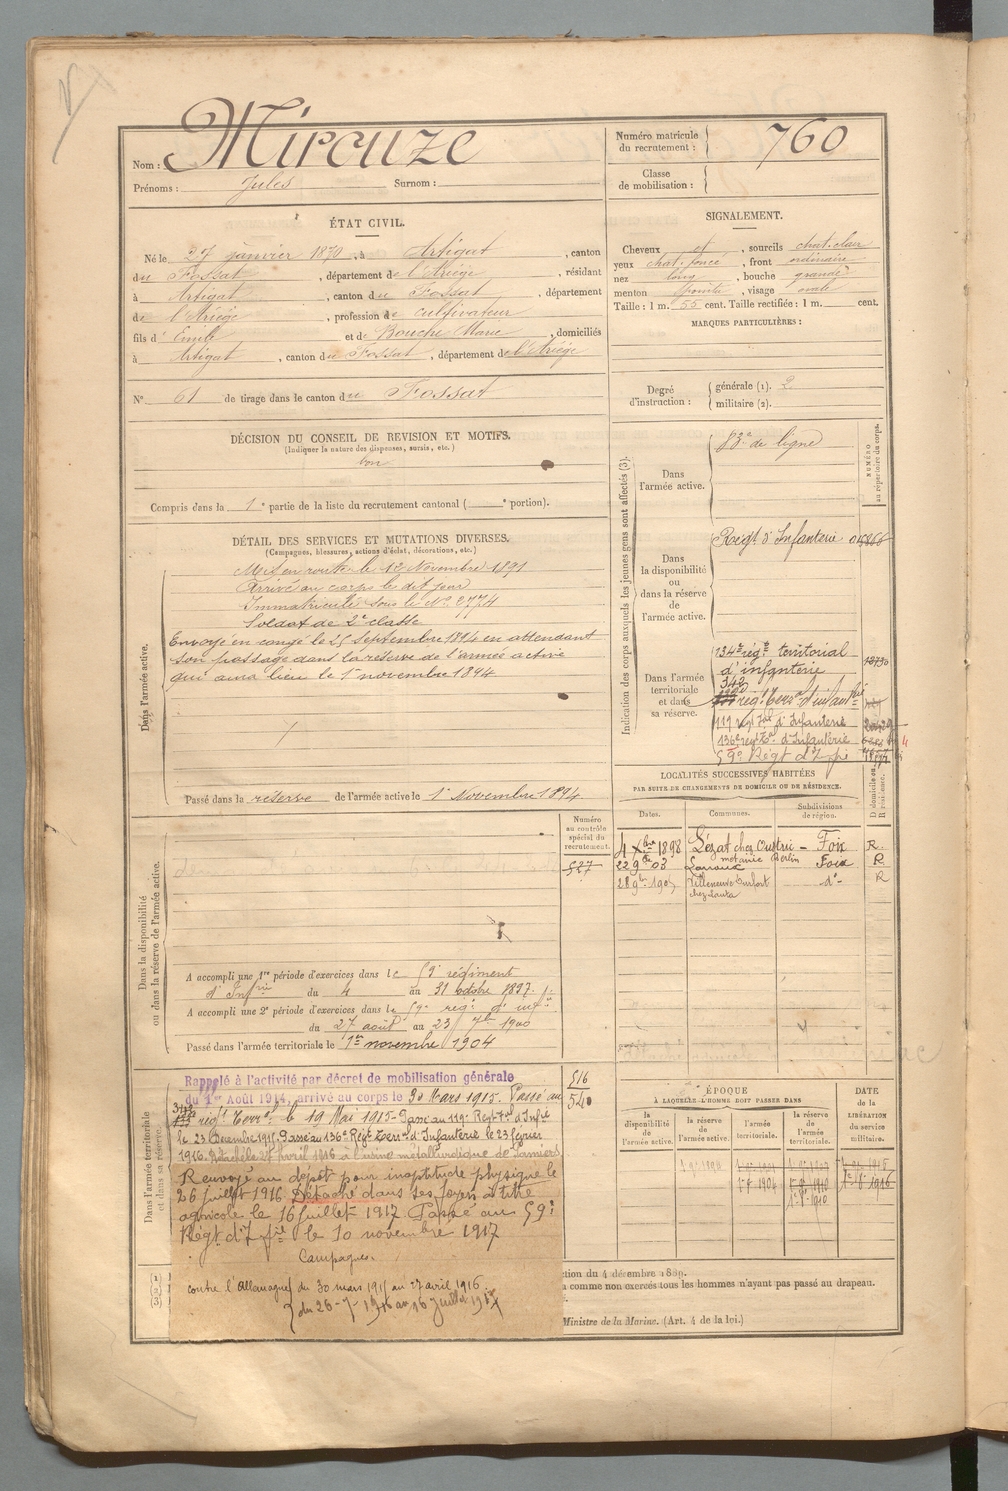 Nom : Mirouze
Prénoms : Jules Surnom :
Numéro matricule du recrutement : 760
Classe de mobilisation :
ÉTAT CIVIL.
Né le 27 janvier 1870, à Artigat, canton
du Fossat, département de l'Ariège, résidant
à Artigat, canton du Fossat, département
de l'Ariège, profession de cultivateur
fils d' Emile et de Bouche Marie, domiciliés
à Artigat, canton du Fossat, département de l'Ariège
N° 61 de tirage dans le canton du Fossat
SIGNALEMENT.
Cheveux et, sourcils chat. clair
yeux chat. foncé, front ordinaire
nez long, bouche grande
menton pointu, visage ovale
Taille : 1 m. 55 cent. Taille rectifiée : 1 m. cent.
MARQUES PARTICULIÈRES :
Degré d'instruction : générale (1). 2
militaire (2).
DÉCISION DU CONSEIL DE REVISION ET MOTIFS.
(Indiquer la nature des dispenses, sursis, etc.)
bon
Compris dans la 1e partie de la liste du recrutement cantonal ( e portion).
DÉTAIL DES SERVICES ET MUTATIONS DIVERSES.
(Campagnes, blessures, actions d'éclat, décorations, etc.)
Dans l'armée active.
Mis en route le 12 Novembre 1891
Arrivé au corps le dit jour
Immatriculé sous le N° 2774
Soldat de 2e classe
Envoyé en congé le 25 Septembre 1894 en attendant
son passage dans la réserve de l'armée active
qui aura lieu le 1 novembre 1894
Passé dans la réserve de l'armée active le 1 Novembre 1894
Indication des corps auxquels les jeunes gens sont affectés (3).
NUMÉRO au répertoire du corps.
Dans l'armée active.
83e de ligne
Dans la disponibilité ou dans la réserve de l'armée active.
Régt d'Infanterie
Dans l'armée territoriale et dans sa réserve.
134e régt territorial
d'infanterie
342
régt Terr. d'infantrie
119 régt Tal d'Infanterie
136e régt Tal d'Infanterie
59e Régt d'Infie
LOCALITÉS SUCCESSIVES HABITÉES
PAR SUITE DE CHANGEMENTS DE DOMICILE OU DE RÉSIDENCE.
D domicile ou R résidence.
Dates. Communes. Subdivisions de région.
4 Xbre 1898 Lézat chez Oustric - Foix R.
22 9bre 03 métairie Berlin Foix R
28 9bre 1907 Villeneuve Durfort do R
Numéro au contrôle spécial du recrutement.
527
Dans la disponibilité ou dans la réserve de l'armée active.
A accompli une 1re période d'exercices dans le 59e régiment
d'Infrie du 4 au 31 octobre 1897.
A accompli une 2e période d'exercices dans le 59e régt d'infie
du 27 août au 23 7bre 1900
Passé dans l'armée territoriale le 1er novembre 1904
Dans l'armée territoriale et dans sa réserve.
516
540
Rappelé à l'activité par décret de mobilisation générale
du 1er Août 1914, arrivé au corps le 30 Mars 1915. Passé au
régt Terral le 19 Mai 1915 - Passé au 119e Regt Tal d'Infie
le 23 Décembre 1915. Passé au 136e Régt Terral d'Infanterie le 23 février
1916. Détaché le 27 Avril 1916 à l'usine métallurgique de Pamiers
Renvoyé au dépôt pour inaptitude physique le
26 juillet 1916 Détaché dans ses foyers à titre
agricole le 16 juillet 1917 Passé au 59e
Régt d'Infie le 10 novembre 1917
Campagnes.
contre l'Allemagne du 30 mars 1915 au 27 avril 1916
du 26-7-1916 au 16 juillet 1917
ÉPOQUE
À LAQUELLE L'HOMME DOIT PASSER DANS
la disponibilité de l'armée active.
la réserve de l'armée active.
l'armée territoriale.
la réserve de l'armée territoriale.
DATE de la LIBÉRATION du service militaire.
1-9-1904
ction du 4 décembre 1889.
à comme non exercés tous les hommes n'ayant pas passé au drapeau.
Ministre de la Marine. (Art. 4 de la loi.)